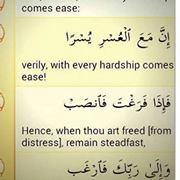 comes ease:
إِنَّ مَعَ ٱلْعُسْرِ يُسْرًا
verily, with every hardship comes
ease!
فَإِذَا فَرَغْتَ فَٱنصَبْ
Hence, when thou art freed [from
distress], remain steadfast,
وَإِلَىٰ رَبِّكَ فَٱرْغَب